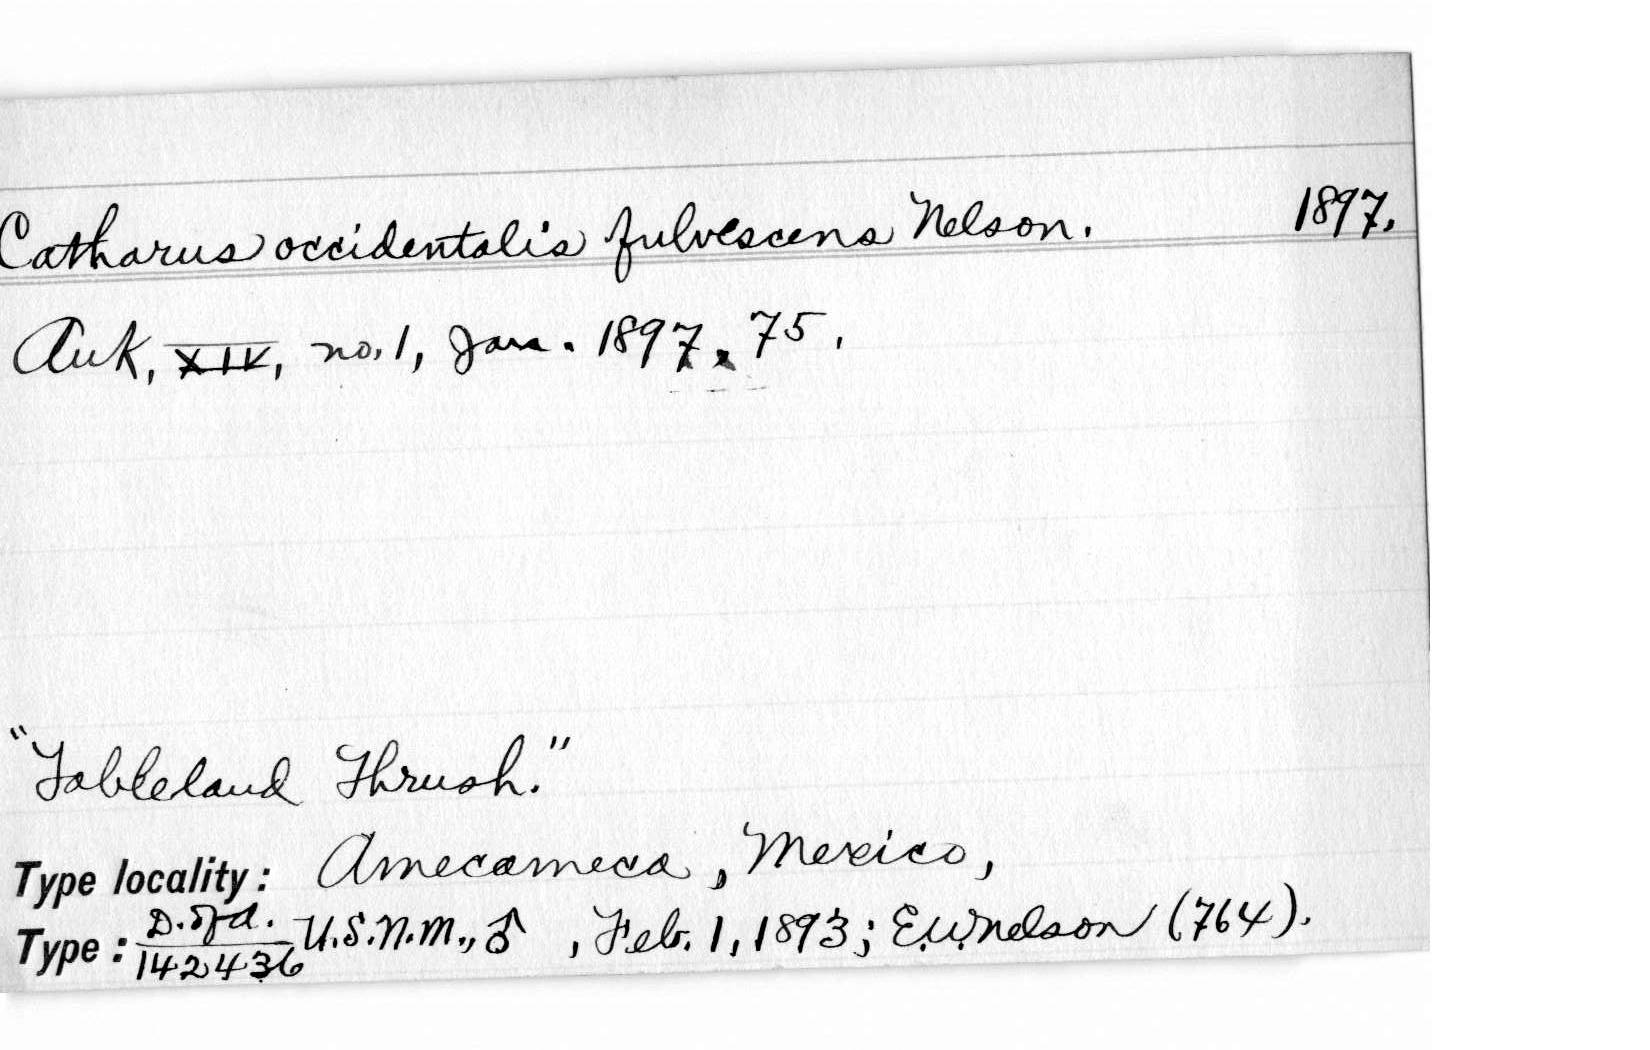 Catharus occidentalis fulvescens Nelson. 1897.
Auk, XIV, no. 1, Jan. 1897, 75.
"Tableland Thrush."
Type locality: Amecameca, Mexico,
Type: D. of A. 142436 U.S.N.M., ♂, Feb. 1, 1893; E.W. Nelson (764).